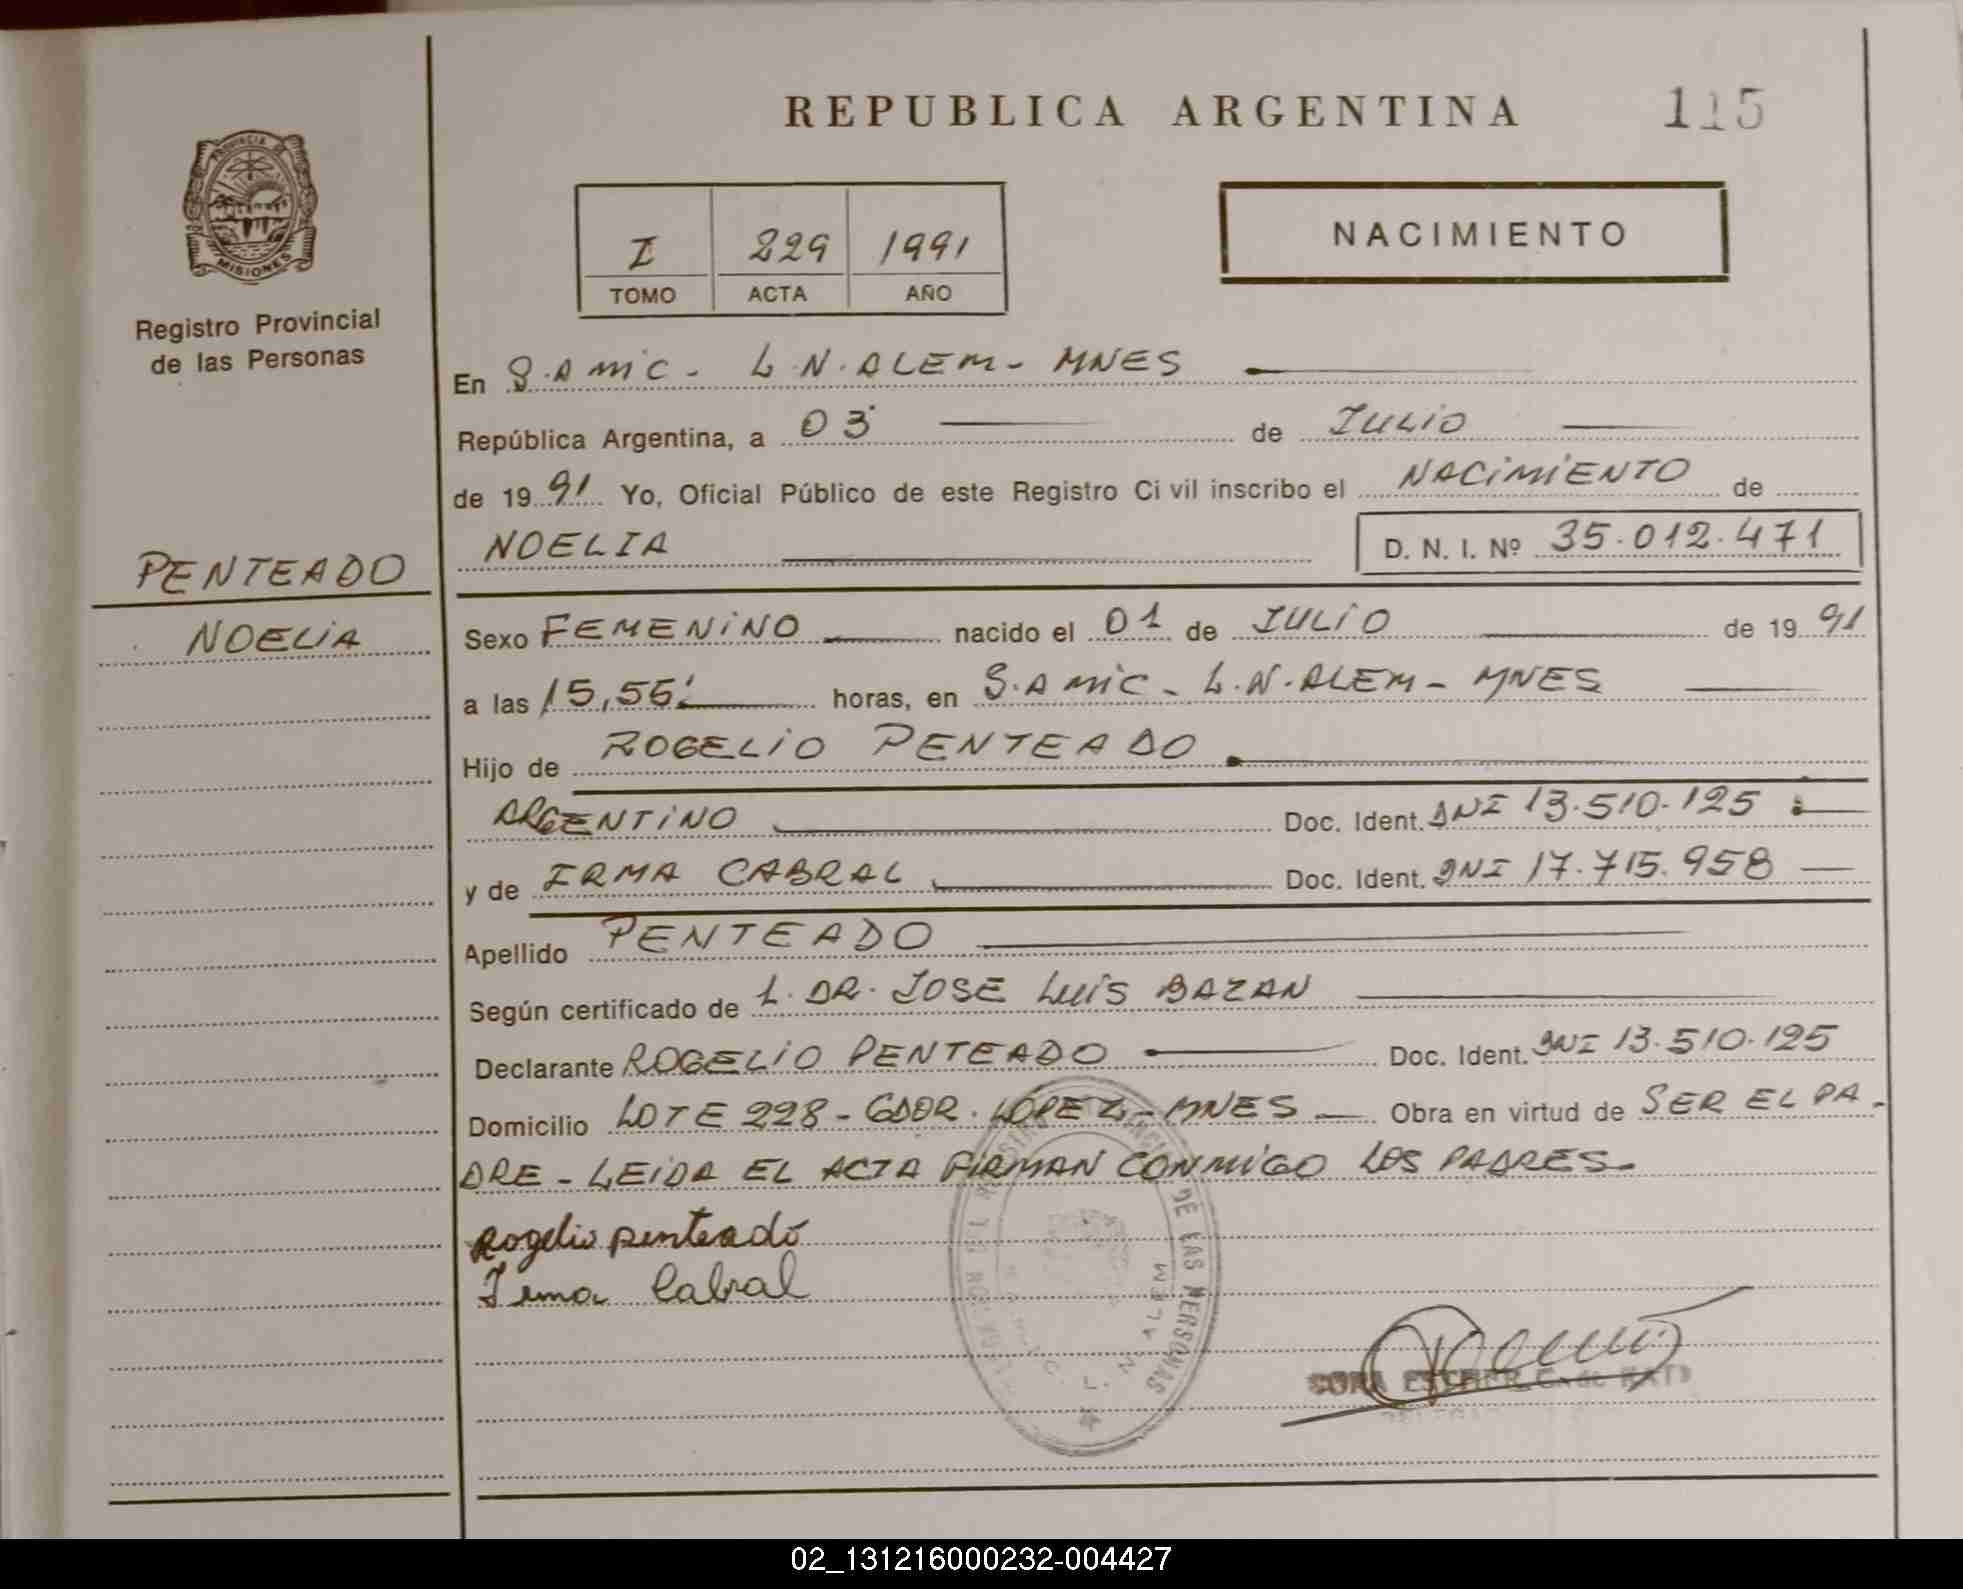 REPUBLICA ARGENTINA
115
PROVINCIA DE
MISIONES
Registro Provincial
de las Personas
I 229 1991
TOMO ACTA AÑO
NACIMIENTO
En S.A MIC - L.N.ALEM - MNES
República Argentina, a 03 de JULIO
de 1991 Yo, Oficial Público de este Registro Civil inscribo el NACIMIENTO de
NOELIA D. N. I. Nº 35.012.471
PENTEADO
NOELIA
Sexo FEMENINO nacido el 01 de JULIO de 1991
a las 15,55' horas, en S.A MIC - L.N.ALEM - MNES
Hijo de ROGELIO PENTEADO
ARGENTINO Doc. Ident. DNI 13.510.125
y de IRMA CABRAL Doc. Ident. DNI 17.715.958
Apellido PENTEADO
Según certificado de L. DR. JOSE LUIS BAZAN
Declarante ROGELIO PENTEADO Doc. Ident. DNI 13.510.125
Domicilio LOTE 228 - GDOR. LOPEZ - MNES Obra en virtud de SER EL PA-
DRE - LEIDA EL ACTA FIRMAN CONMIGO LOS PADRES-
Rogelio penteado
Irma Cabral
DE LAS PERSONAS
L. N. ALEM
02_131216000232-004427